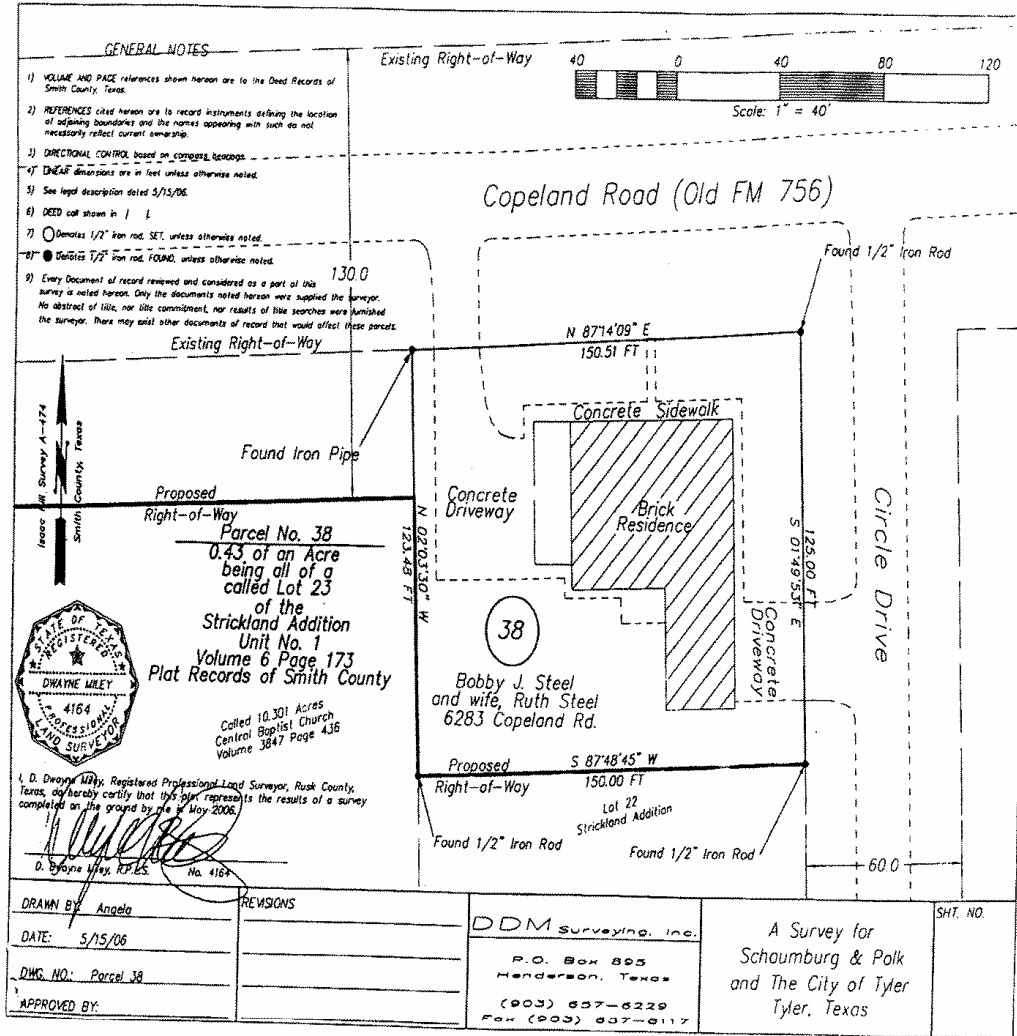 GENERAL NOTES
1) VOLUME AND PAGE references shown hereon are to the Deed Records of
Smith County, Texas.
2) REFERENCES cited hereon are to record instruments defining the location
of adjoining boundaries and the names appearing with such do not
necessarily reflect current ownership.
3) DIRECTIONAL CONTROL based on compass bearings.
4) LINEAR dimensions are in feet unless otherwise noted.
5) See legal description dated 5/15/06.
6) DEED call shown in [ ].
7) Denotes 1/2" iron rod, SET, unless otherwise noted.
8) Denotes 1/2" iron rod, FOUND, unless otherwise noted.
9) Every Document of record reviewed and considered as a part of this
survey is noted hereon. Only the documents noted hereon were supplied the surveyor.
No abstract of title, nor title commitment, nor results of title searches were furnished
the surveyor. There may exist other documents of record that would affect these parcels.
Existing Right-of-Way
40 0 40 80 120
Scale: 1" = 40'
Copeland Road (Old FM 756)
130.0
Existing Right-of-Way
Found 1/2" Iron Rod
N 87°14'09" E
150.51 FT
Isaac Hill Survey A-474
Smith County, Texas
N
Found Iron Pipe
Concrete Sidewalk
Concrete
Driveway
Brick
Residence
Proposed
Right-of-Way
N 02°03'30" W
123.48 FT
125.00 FT
S 01°49'53" E
Circle Drive
Concrete
Driveway
Parcel No. 38
0.43 of an Acre
being all of a
called Lot 23
of the
Strickland Addition
Unit No. 1
Volume 6 Page 173
Plat Records of Smith County
38
Bobby J. Steel
and wife, Ruth Steel
6283 Copeland Rd.
STATE OF TEXAS
REGISTERED
DWAYNE MILEY
4164
PROFESSIONAL
LAND SURVEYOR
Called 10.301 Acres
Central Baptist Church
Volume 3847 Page 436
Proposed
Right-of-Way
S 87°48'45" W
150.00 FT
Lot 22
Strickland Addition
Found 1/2" Iron Rod
Found 1/2" Iron Rod
60.0
I, D. Dwayne Miley, Registered Professional Land Surveyor, Rusk County,
Texas, do hereby certify that this plat represents the results of a survey
completed on the ground by me in May 2006.
D. Dwayne Miley, R.P.L.S. No. 4164
DRAWN BY: Angela
DATE: 5/15/06
DWG. NO.: Parcel 38
APPROVED BY:
REVISIONS
DDM Surveying, Inc.
P.O. Box 895
Henderson, Texas
(903) 657-6229
Fax (903) 657-6117
A Survey for
Schaumburg & Polk
and The City of Tyler
Tyler, Texas
SHT. NO.